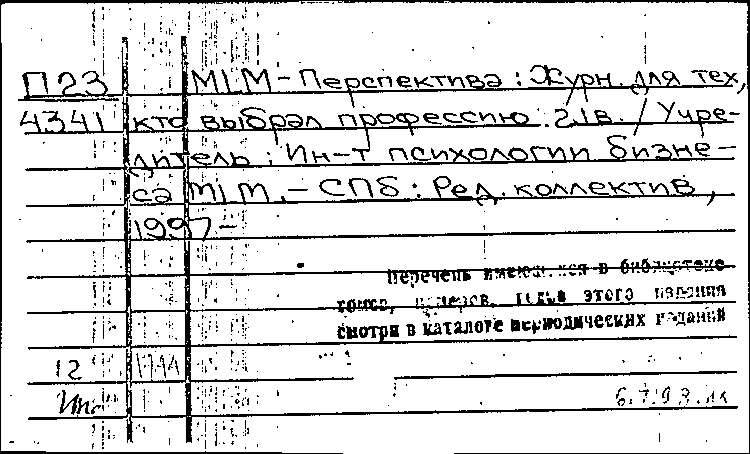 П23 MLM-Перспектива: Журн. для тех,
4341 кто выбрал профессию 21в. / Учре-
дитель: Ин-т психологии бизне-
са MLM. - СПб: Ред. коллектив,
1997-
Перечень имеющихся в библиотеке
томов, номеров, годы этого издания
смотри в каталоге периодических изданий
12